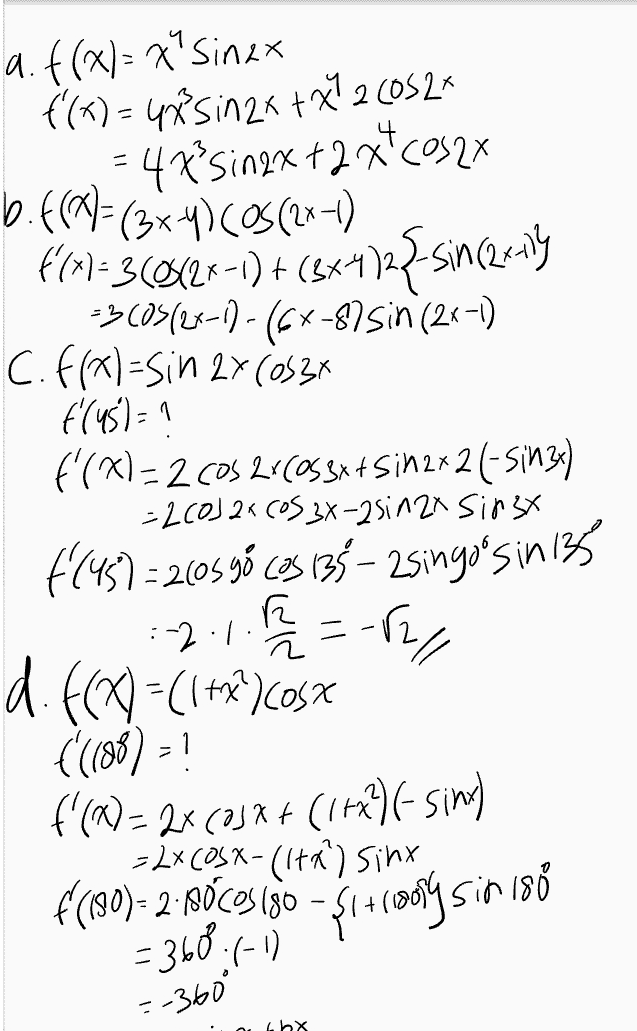 a. f(x) = x⁴ sin2x
f'(x) = 4x³ sin2x + x⁴ 2 cos2x
= 4x³ sin2x + 2x⁴ cos2x
b. f(x) = (3x-4) cos(2x-1)
f'(x) = 3 cos(2x-1) + (3x-4) 2 {-sin(2x-1)}
= 3 cos(2x-1) - (6x-8) sin(2x-1)
c. f(x) = sin 2x cos3x
f'(45°) = ?
f'(x) = 2 cos 2x cos3x + sin2x 2 (-sin3x)
= 2 cos 2x cos 3x - 2 sin 2x sin 3x
f'(45°) = 2 cos 90° cos 135° - 2 sin 90° sin 135°
= -2 · 1 · √2/2 = -√2 //
d. f(x) = (1+x²) cosx
f'(180°) = ?
f'(x) = 2x cosx + (1+x²)(-sinx)
= 2x cosx - (1+x²) sinx
f'(180) = 2·180° cos180 - {1+(180°)²} sin 180°
= 360°·(-1)
= -360°